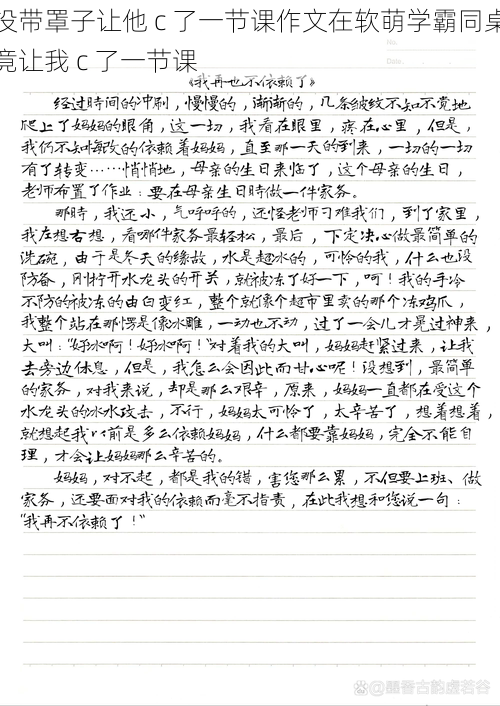 没带罩子让他 c 了一节课作文在软萌学霸同桌
竟让我 c 了一节课
No.
Date.
《我再也不依赖了》
经过时间的冲刷，慢慢的，渐渐的，几条皱纹不知不觉地
爬上了妈妈的眼角，这一切，我看在眼里，疼在心里，但是，
我仍不知悔改的依赖着妈妈，直至那一天的到来，一切的一切
有了转变……悄悄地，母亲的生日来临了，这个母亲的生日，
老师布置了作业：要在母亲生日时做一件家务。
那时，我还小，气呼呼的，还怪老师刁难我们，到了家里，
我左想右想，看哪件家务最轻松，最后，下定决心做最简单的
洗碗，由于是冬天的缘故，水是超冰的，可怜的我，什么也没
防备，刚拧开水龙头的开关，就被冻了好一下，呵！我的手冷
不防的被冻的由白变红，整个就像个超市里卖的那个冻鸡爪，
我整个站在那愣是像冰雕，一动也不动，过了一会儿才晃过神来，
大叫：“好冰啊！好冰啊！”对着我的大叫，妈妈赶紧过来，让我
去旁边休息，但是，我怎么会因此而甘心呢！没想到，最简单
的家务，对我来说，却是那么艰辛，原来，妈妈一直都在受这个
水龙头的冰水攻击，不行，妈妈太可怜了，太辛苦了，想着想着，
就想起我以前是多么依赖妈妈，什么都要靠妈妈，完全不能自
理，才会让妈妈那么辛苦的。
妈妈，对不起，都是我的错，害您那么累，不但要上班、做
家务，还要面对我的依赖而毫不指责，在此我想和您说一句：
“我再不依赖了！”